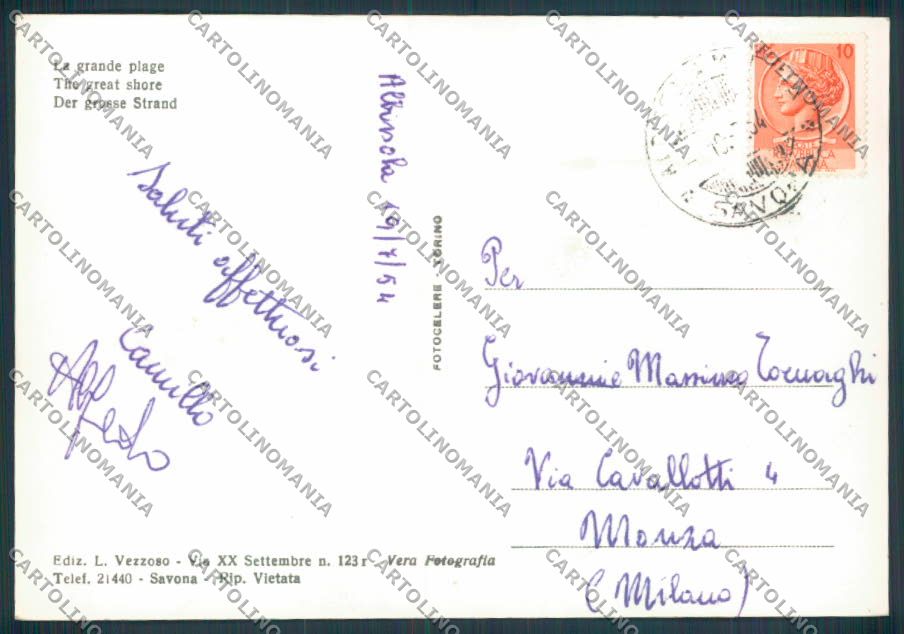 La grande plage
The great shore
Der grosse Strand
Albisola 19/7/54
Saluti affettuosi
Camillo
Alfredo
FOTOCELERE - TORINO
10
SAVONA
Per
Giovannine Massimo Tornaghi
Via Cavallotti 4
Monza
(Milano)
Ediz. L. Vezzoso - Via XX Settembre n. 123 r - Vera Fotografia
Telef. 21440 - Savona - Rip. Vietata
CARTOLINOMANIA